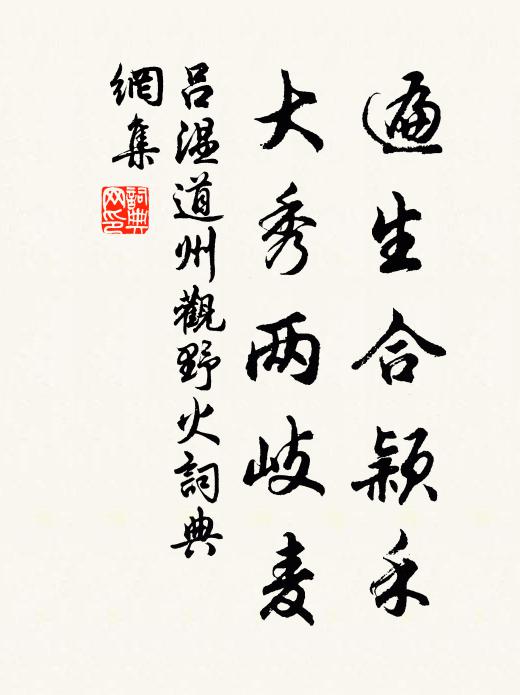 遍生合颖禾
大秀两岐麦
吕温道州觀野火詞典
網集
詞典
网印